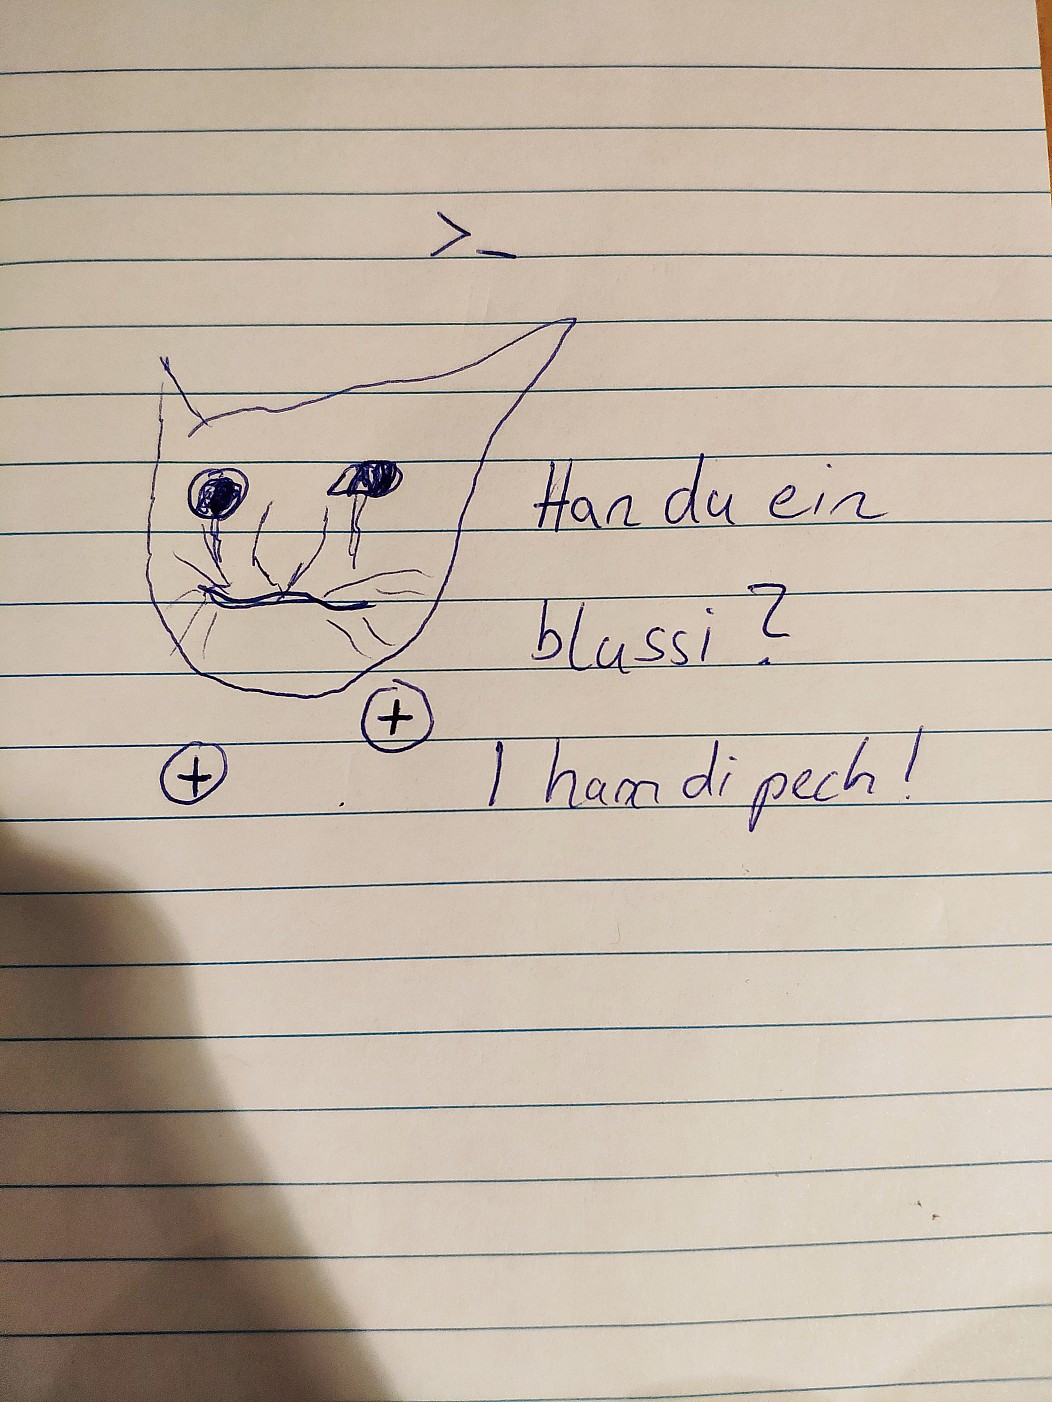 >_
Han du ein
blussi?
I ham di pech!
+
+